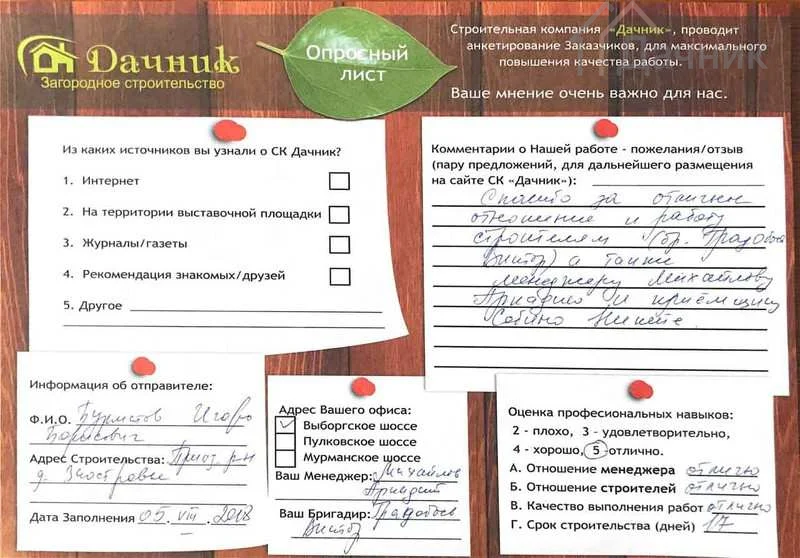 Дачник
Загородное строительство
Опросный
лист
Строительная компания «Дачник», проводит
анкетирование Заказчиков, для максимального
повышения качества работы.
Ваше мнение очень важно для нас.
Дачник
Из каких источников вы узнали о СК Дачник?
1. Интернет
2. На территории выставочной площадки
3. Журналы/газеты
4. Рекомендация знакомых/друзей
5. Другое
Комментарии о Нашей работе - пожелания/отзыв
(пару предложений, для дальнейшего размещения
на сайте СК «Дачник»):
Спасибо за отличное
отношение и работу
строителям (бр. Традобоев
Виктор) а также
менеджеру Михайлову
Аркадию и приёмщику
Никите
Информация об отправителе:
Ф.И.О. Бурмстов Игорь
Борисович
Адрес Строительства: Приоз. р-н
д. Знаотровье
Дата Заполнения 05. VIII. 2018
Адрес Вашего офиса:
Выборгское шоссе
Пулковское шоссе
Мурманское шоссе
Ваш Менеджер: Михайлов
Аркадий
Ваш Бригадир: Традобоев
Виктор
Оценка професиональных навыков:
2 - плохо, 3 - удовлетворительно,
4 - хорошо, 5 -отлично.
А. Отношение менеджера отлично
Б. Отношение строителей отлично
В. Качество выполнения работ отлично
Г. Срок строительства (дней) 17